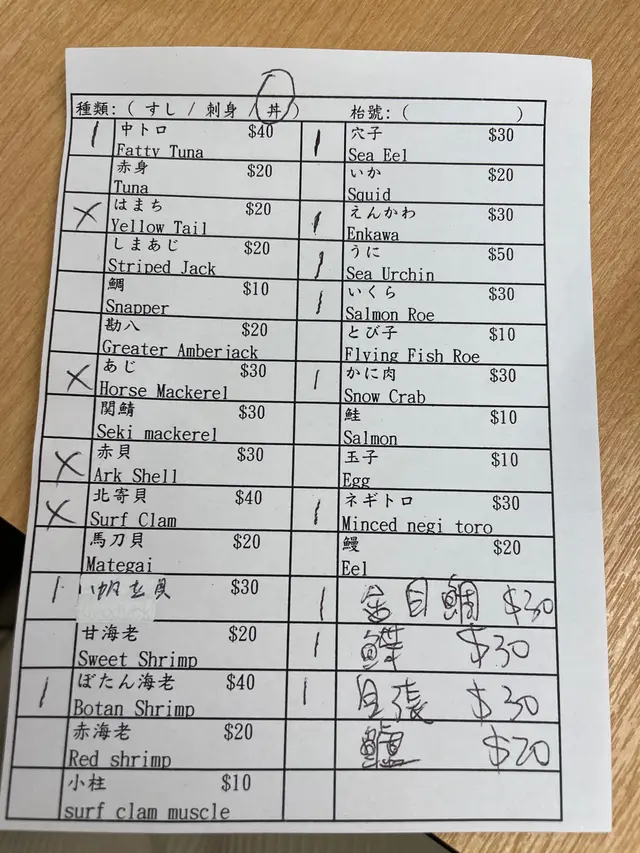 種類: ( すし / 刺身 / 丼 )
枱號: ( )
1 中トロ $40
Fatty Tuna
赤身 $20
Tuna
X はまち $20
Yellow Tail
しまあじ $20
Striped Jack
鯛 $10
Snapper
勘八 $20
Greater Amberjack
X あじ $30
Horse Mackerel
関鯖 $30
Seki mackerel
X 赤貝 $30
Ark Shell
X 北寄貝 $40
Surf Clam
馬刀貝 $20
Mategai
1 帆立貝 $30
甘海老 $20
Sweet Shrimp
1 ぼたん海老 $40
Botan Shrimp
赤海老 $20
Red shrimp
小柱 $10
surf clam muscle
1 穴子 $30
Sea Eel
いか $20
Squid
1 えんかわ $30
Enkawa
1 うに $50
Sea Urchin
1 いくら $30
Salmon Roe
とび子 $10
Flying Fish Roe
1 かに肉 $30
Snow Crab
鮭 $10
Salmon
玉子 $10
Egg
1 ネギトロ $30
Minced negi toro
鰻 $20
Eel
1 金目鯛 $30
1 $30
1 目張 $30
$20